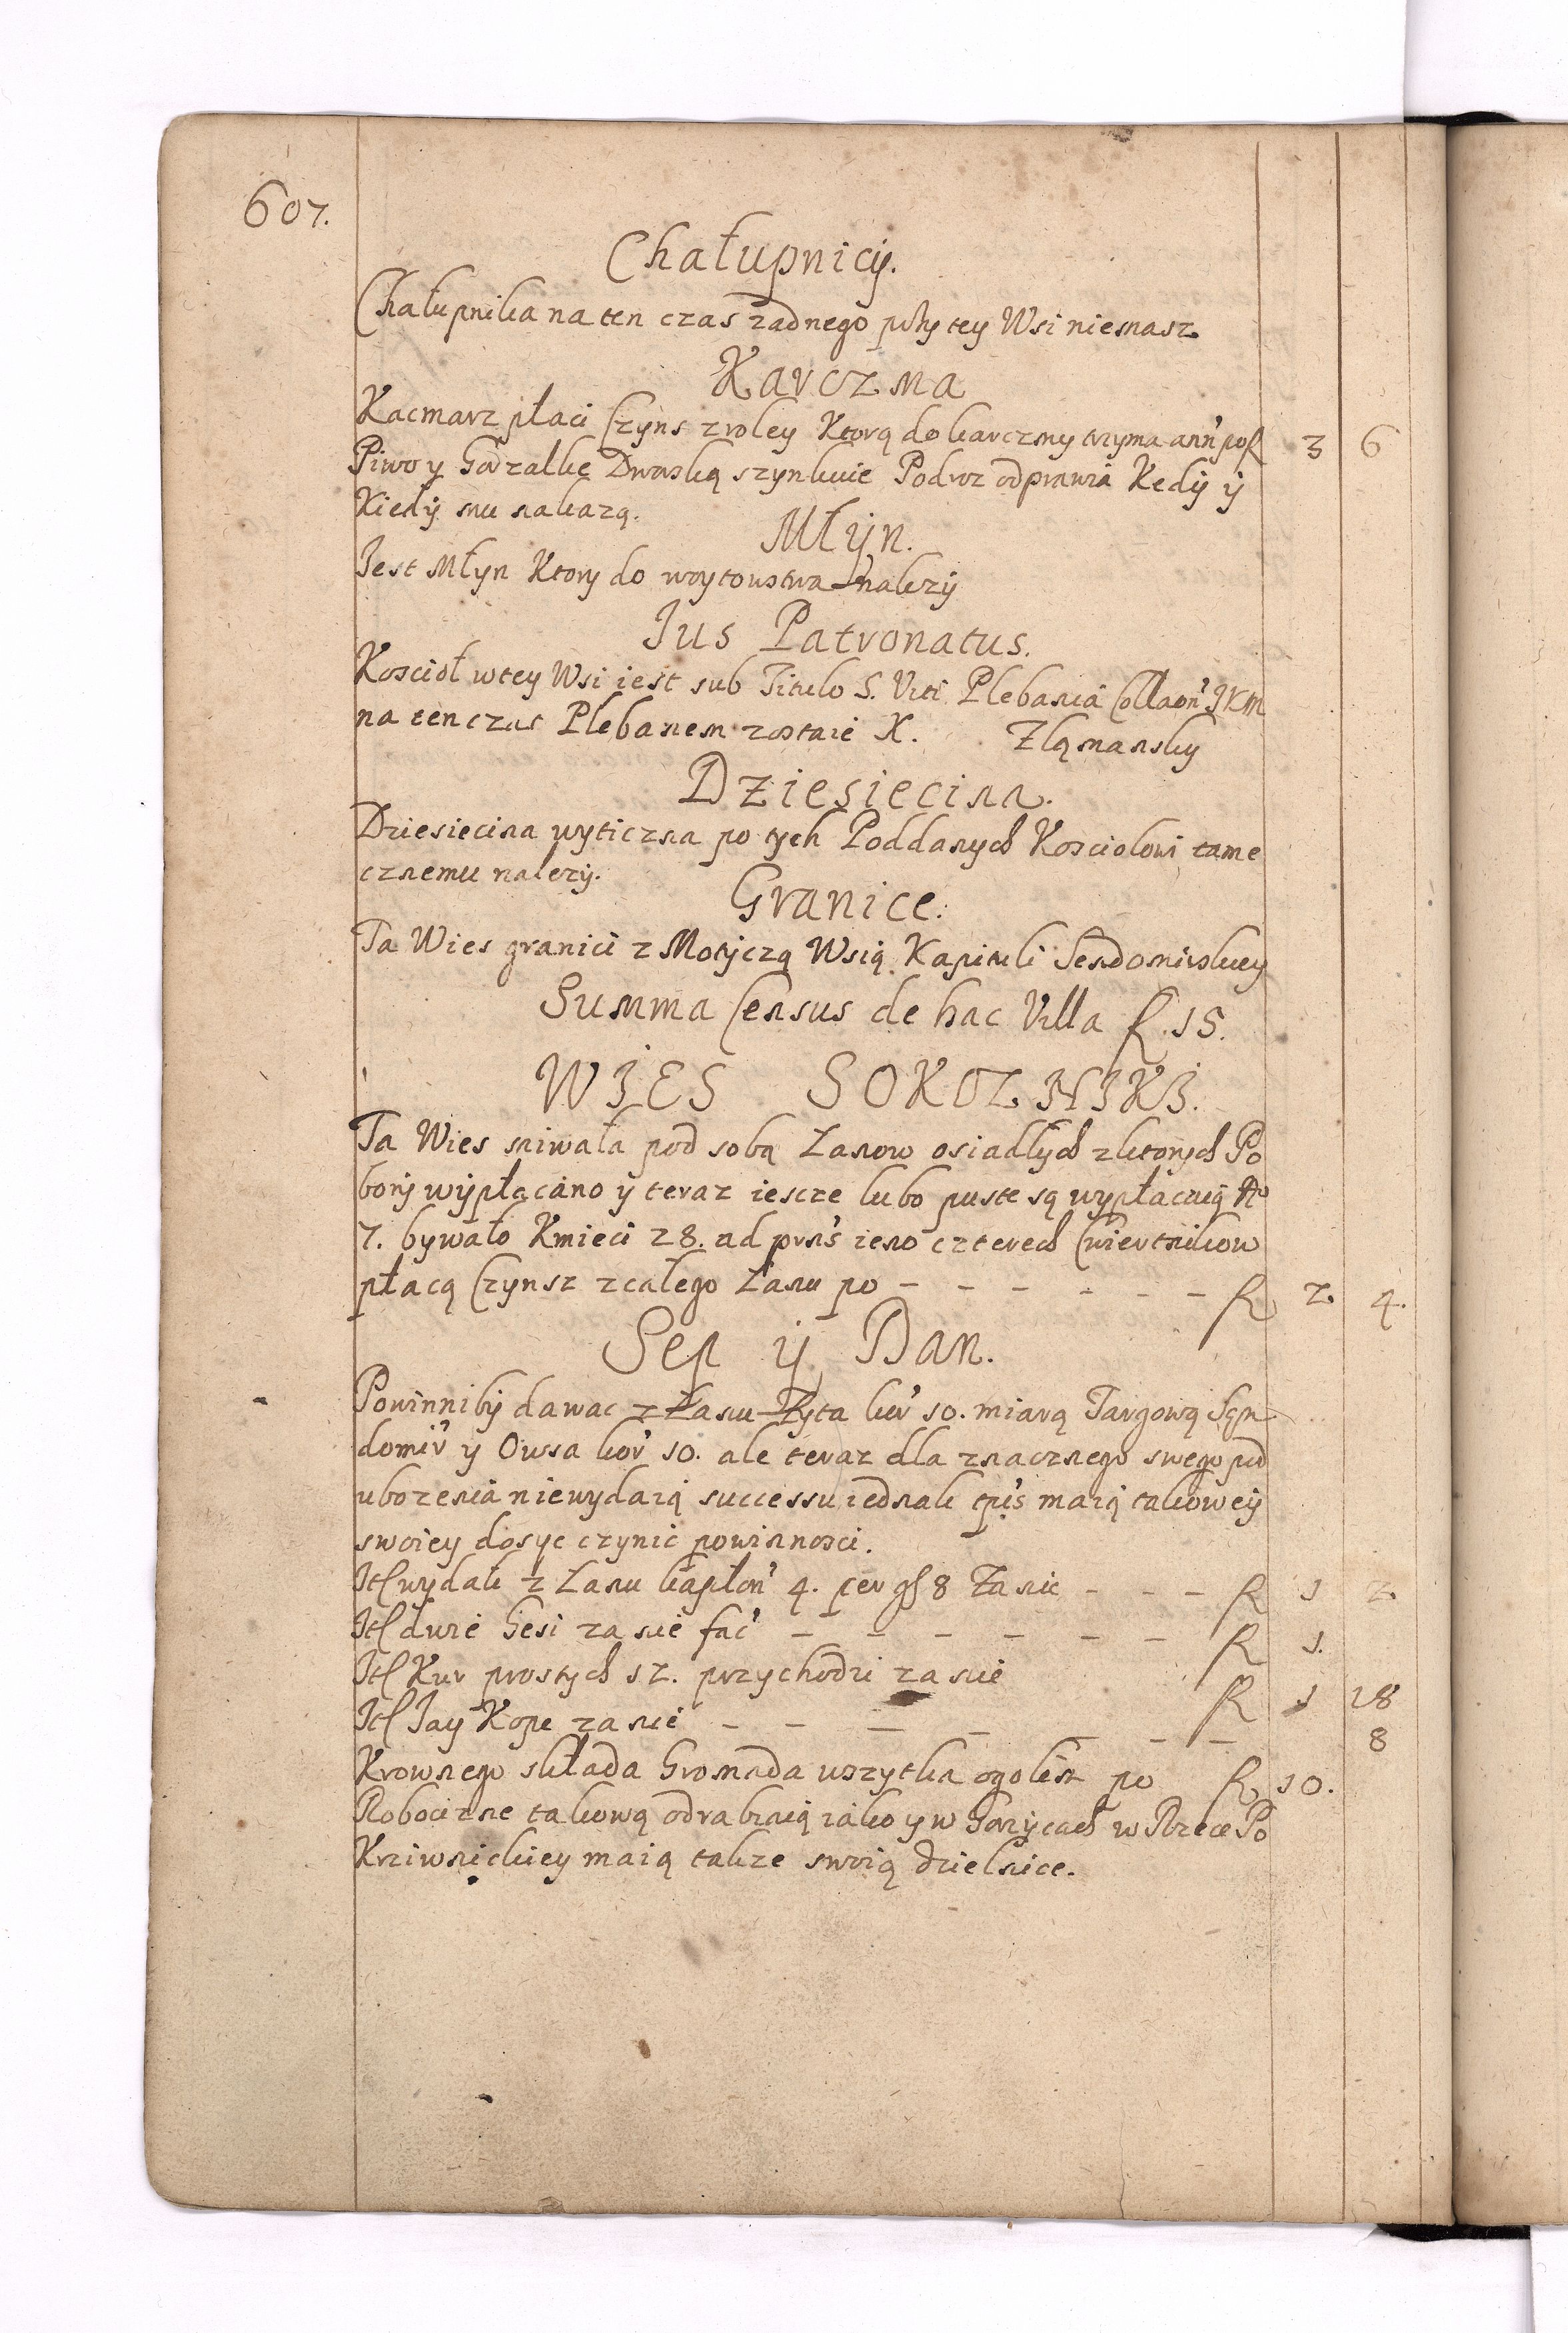 607.
Chałupnicy.
Chałupnika na ten czas zadnego przy tey Wsi niemasz
Karczma
Kacmarz płaci Czyns z roley Ktorą do karczmy trzyma ann' po f 3 6
Piwo y Gorzałke Dworską szynkuie Podroz odprawia Kedÿ ÿ
Kiedÿ mu nakazą.
Młÿn.
Jest Młyn Ktory do woytowstwa nalezÿ
Jus Patronatus.
Kosciół w tey Wsi iest sub Titulo S. Viti Plebania Collaon' JKM
na ten czas Plebanem zostaie X. Zląmansky
Dziesiecina.
Dziesiecina wyticzna po tych Poddanych Kosciolowi tame
cznemu nalezÿ.
Granice.
Ta Wies granici z Motÿczą Wsią Kapituli Sendomirskiey
Summa Census de hac Villa f. 15.
WIES SOKOLNIKI.
Ta Wies miwała pod sobą Lanow osiadłych z ktorych Po
borÿ wÿpłącano ÿ teraz iescze lubo puste są wypłacaią No
7. bywało Kmieci 28. ad prns' ieno czterech Cwiertnikow
płacą Czynsz z całego Łanu po - - - - - - f 2 4.
Sep ÿ Dan.
Powinnibÿ dawac z Łanu Zyta kor' 10. miarą Targową Sęn
domir' y Owsa kor' 10. ale teraz dla znacznego swego pod
ubozenia niewydaią successu iednak tpis' maią takowey
swoiey dosyc czynic powinnosci.
It wydali z Lanu kapłon' 4. per gs 8 Za nie - - - f 1 2
It dwie Gesi za nie fac' - - - - - - f 1.
It Kur prostych 12. przychodzi za nie f 1 18
It Jay Kope za nie - - - - - - - 8
Krownego składa Gromada wszytka ogolem po f 10.
Robocizne takową odrabiaią iako y w Gorzycach w Rzece Po
Krziwnickiey maią takze swoią dzielnice.